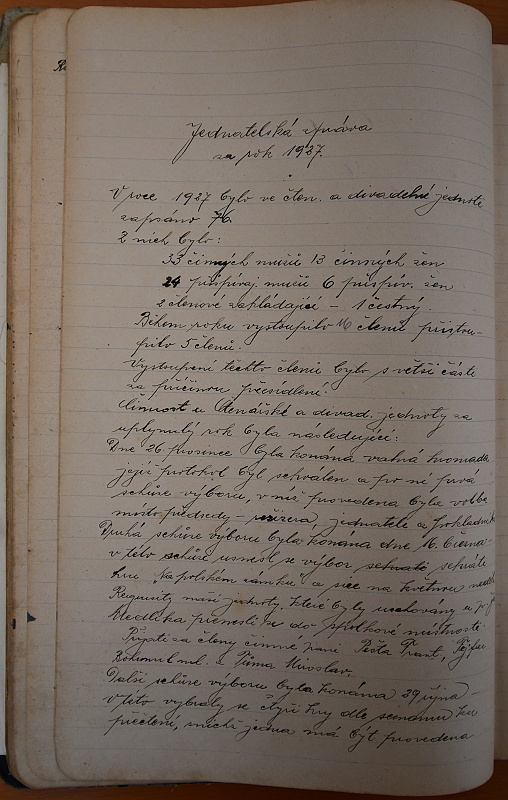 Jednatelská zpráva
za rok 1927.
V roce 1927 bylo ve čten. a divadelní jednotě
zapsáno 76.
Z nich bylo:
33 činných mužů 13 činných žen
24 přispívaj. mužů 6 přispív. žen
2 členové zakládající – 1 čestný.
Během roku vystoupilo 16 členů přistou-
pilo 5 členů.
Vystoupení těchto členů bylo s větší části
za příčinou přesídlení.
Činnost u Čtenářské a divad. jednoty za
uplynulý rok byla následující:
Dne 26. prosince byla konána valná hromada
její protokol byl schválen a po ní prvá
schůze výboru, v níž provedena byla volba
místopředsedy – režiséra, jednatele a pokladníka
Druhá schůze výboru byla konána dne 16. března –
v této schůze usnesl se výbor sehráti sehráti
hru Na polském zámku a sice na květnou neděli
Requisity naší jednoty, které byly uschovány u p.
Medlíka přenesli se do spolkové místnosti.
Přijati za členy činné paní Pešta Frant.,
Bohumil ml. a Tůma Miroslav.
Další schůze výboru byla konána 29 října –
v této vybraly se čtyři hry dle seznamu ku
přečtení, nichž jedna má být provedena